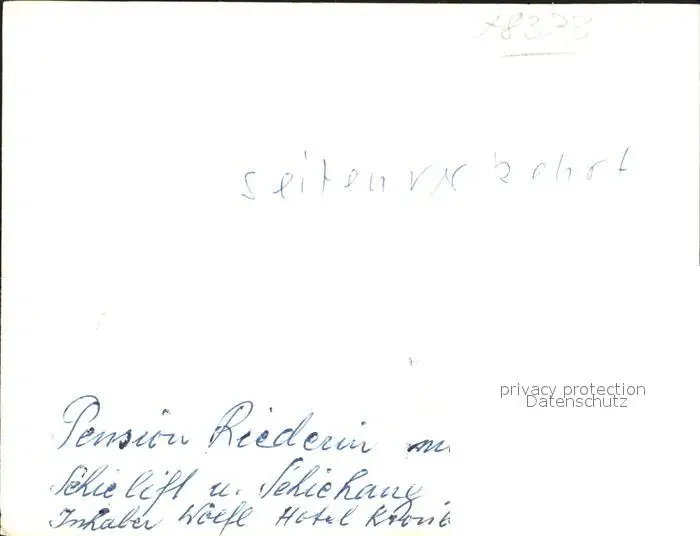 78373
seitenverkehrt
privacy protection
Datenschutz
Pension Riederin
Schielift u. Schiehang
Inhaber Wölfl Hotel